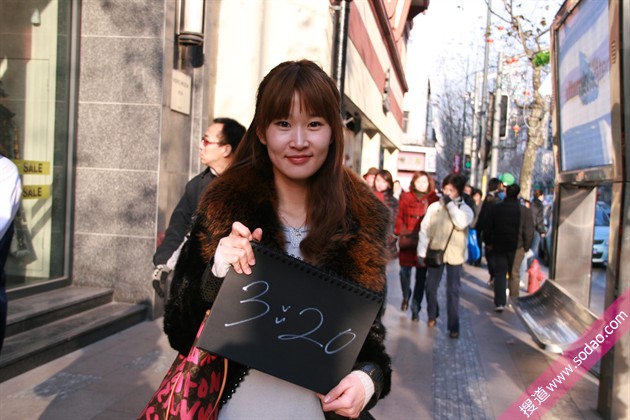 SALE
SALE
3:20
搜道 www.sodao.com